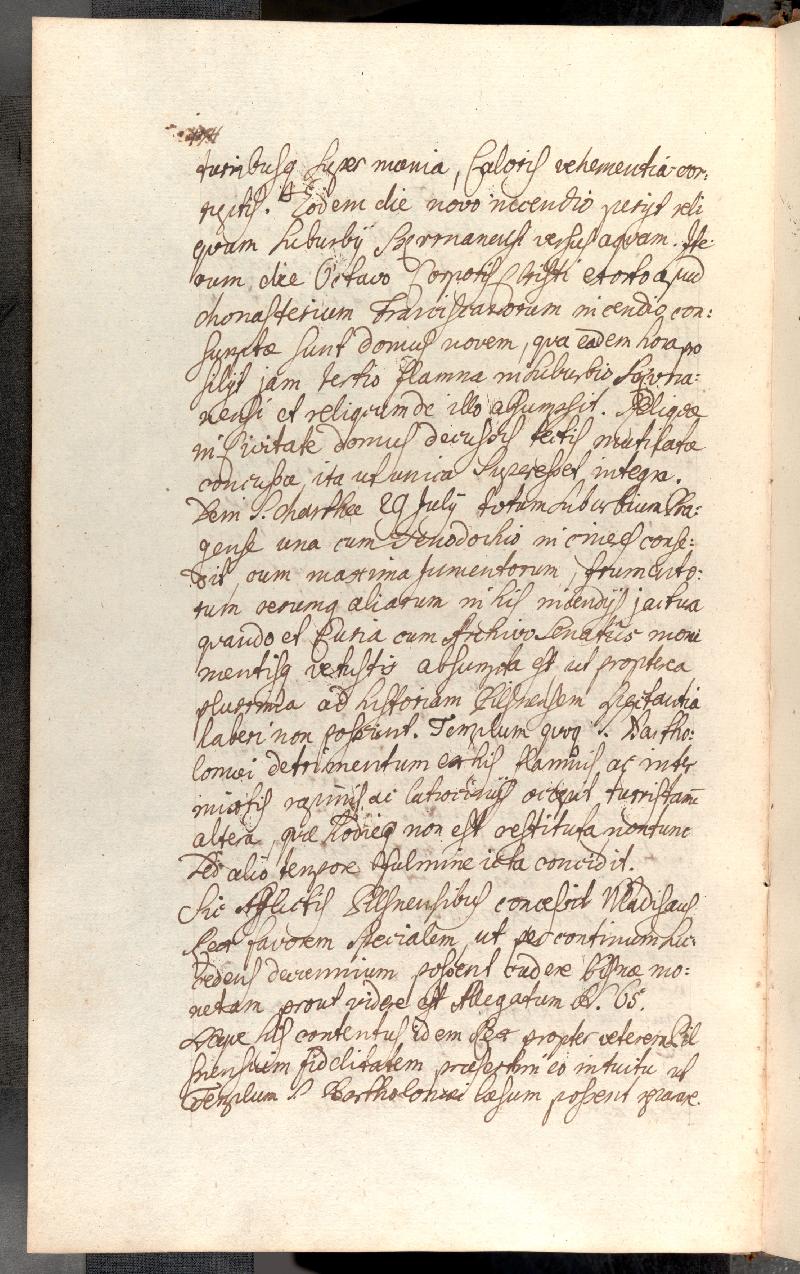 turribusq super mœnia, Caloris vehementia cor:
reptis. Eodem die novo incendio perijt reli
quum suburbij versus aquam. Ite:
rum die Octavo Corporis Christi exorto apud
Monasterium Franciscanorum incendio con:
sumptæ sunt domus novem, qua eadem hora pro
silijt jam tertio flamma in suburbio
nensi et reliquum de illo absumpsit. Reliquæ
in Civitate domus decussis tectis mutilatæ
concussæ, ita ut unica superesset integra.
Dein S. Marthæ 29 July totum suburbium Pra:
gense una cum Xenodochio in cineres conse:
dit, cum maxima jumentorum, frumento:
rum rerumq aliarum in his incendijs jactura
quando et Curia cum Archivo Senatus monu
mentisq vetustis absumpta est ut propterea
plurima ad historiam Pilsnensem spectantia
haberi non possunt. Templum quoq S. Bartho:
lomæi detrimentum ex his flammis ac inter
mixtis rapinis ac latrocinijs accepit turris tamē
altera, quæ hodieq non est restituta, non tunc
Sed alio tempore fulmine icta concidit.
Sic Afflictis Pilsnensibus concessit Vladislaus
Rex favorem specialem, ut per continuum suc:
cedens decennium possent cudere monetam
prout videre est Allegatum N. 65.
Neque his contentus idem Rex propter veterem Pil
snensium fidelitatem præsertim eo intuitu ut
Templum S Bartholomæi læsum possent reparare.